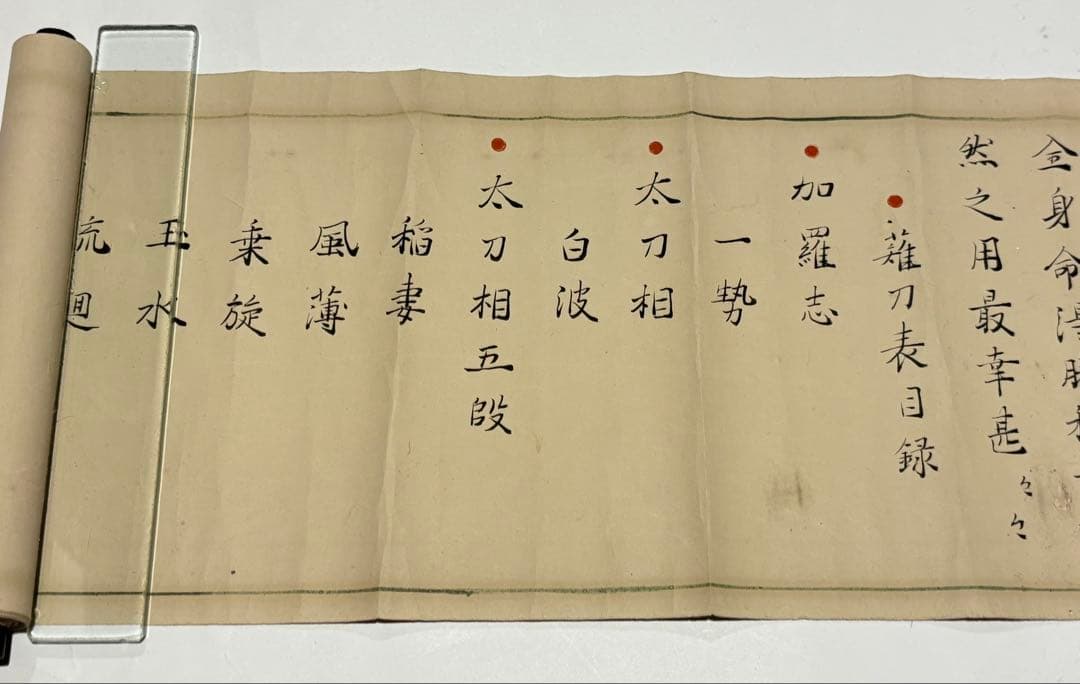 全身命得勝利
然之用最幸甚々々
薙刀表目録
加羅志
一勢
太刀相
白波
太刀相五段
稲妻
風薄
乗旋
玉水
流廻